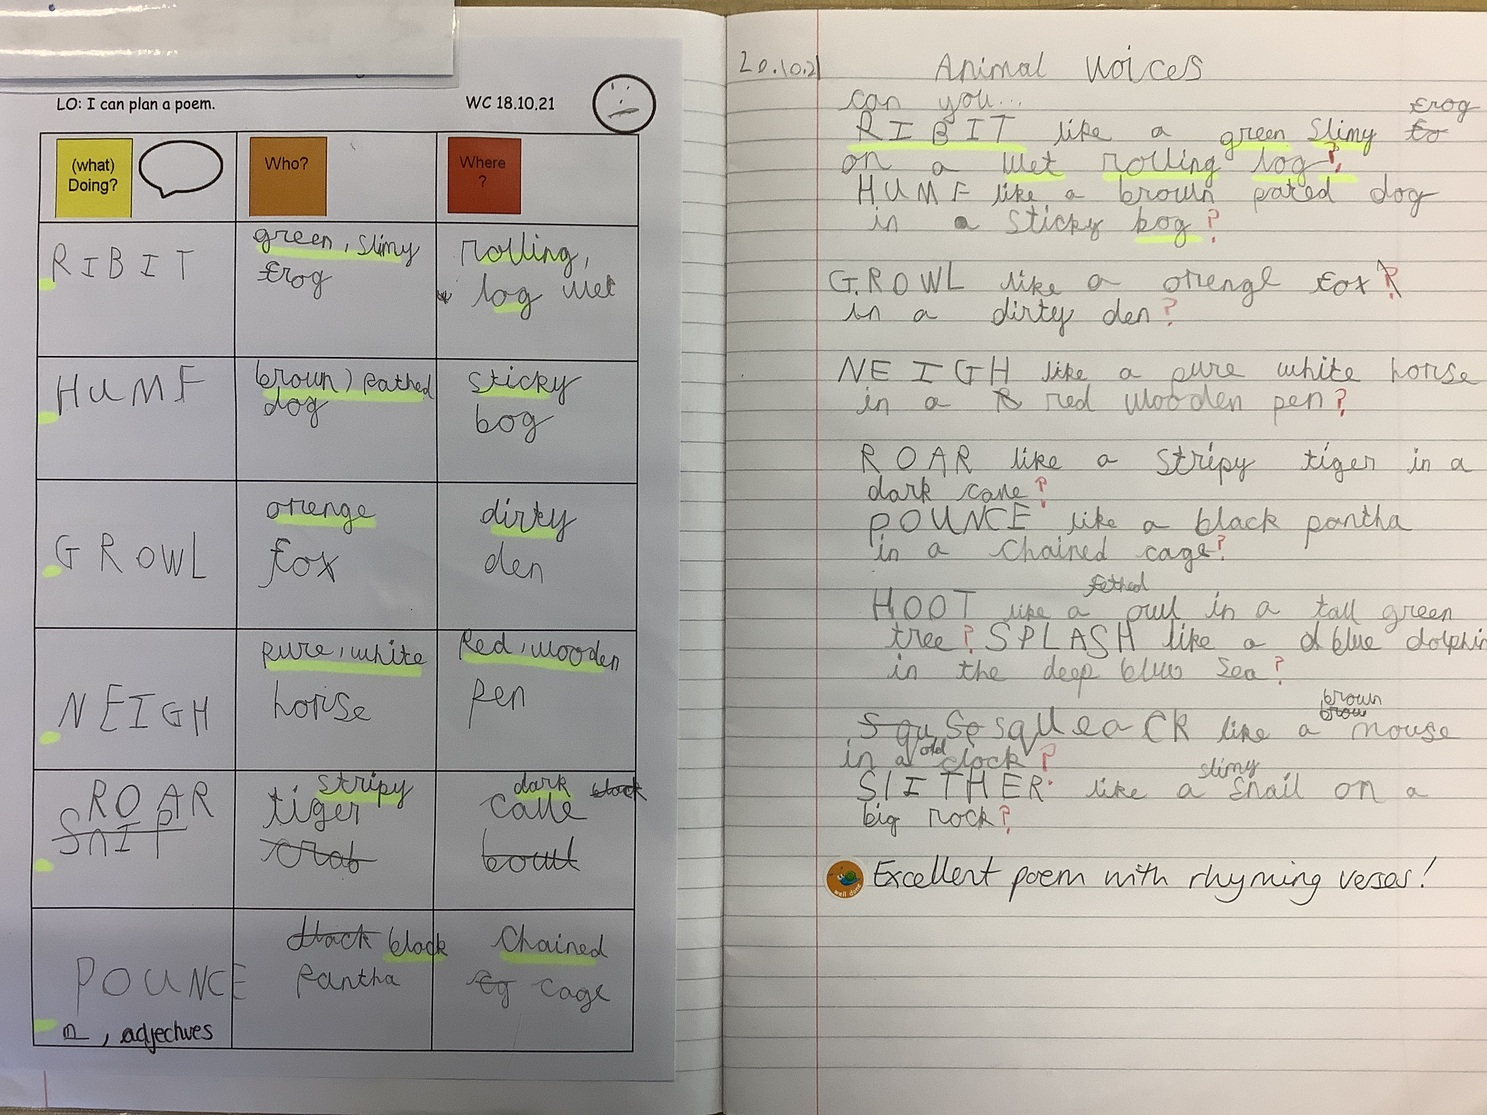 LO: I can plan a poem.
WC 18.10.21
(what)
Doing?
Who?
Where
?
RIBIT
green, slimy
frog
rolling,
log wet
HUMF
brown, pathed
dog
sticky
bog
GROWL
orenge
fox
dirty
den
NEIGH
pure, white
horse
Red, wooden
pen
ROAR
Snip
stripy
tiger
crab
dark
cave
bowl
POUNCE
black black
Pantha
Chained
cage
, adjectives
20.10.21
Animal voices
can you...
frog
RIBIT like a green slimy fo
on a wet rolling log?
HUMF like a brown pated dog
in a sticky bog?
GROWL like a orenge fox?
in a dirty den?
NEIGH like a pure white horse
in a R red wooden pen?
ROAR like a stripy tiger in a
dark cave?
POUNCE like a black pantha
in a chained cage?
fethed
HOOT like a owl in a tall green
tree? SPLASH like a d blue dolphin
in the deep blue sea?
brown
brow
Squ Se squeack like a mouse
old
in a clock?
slimy
SLITHER like a snail on a
big rock?
well done
Excellent poem with rhyming verses!